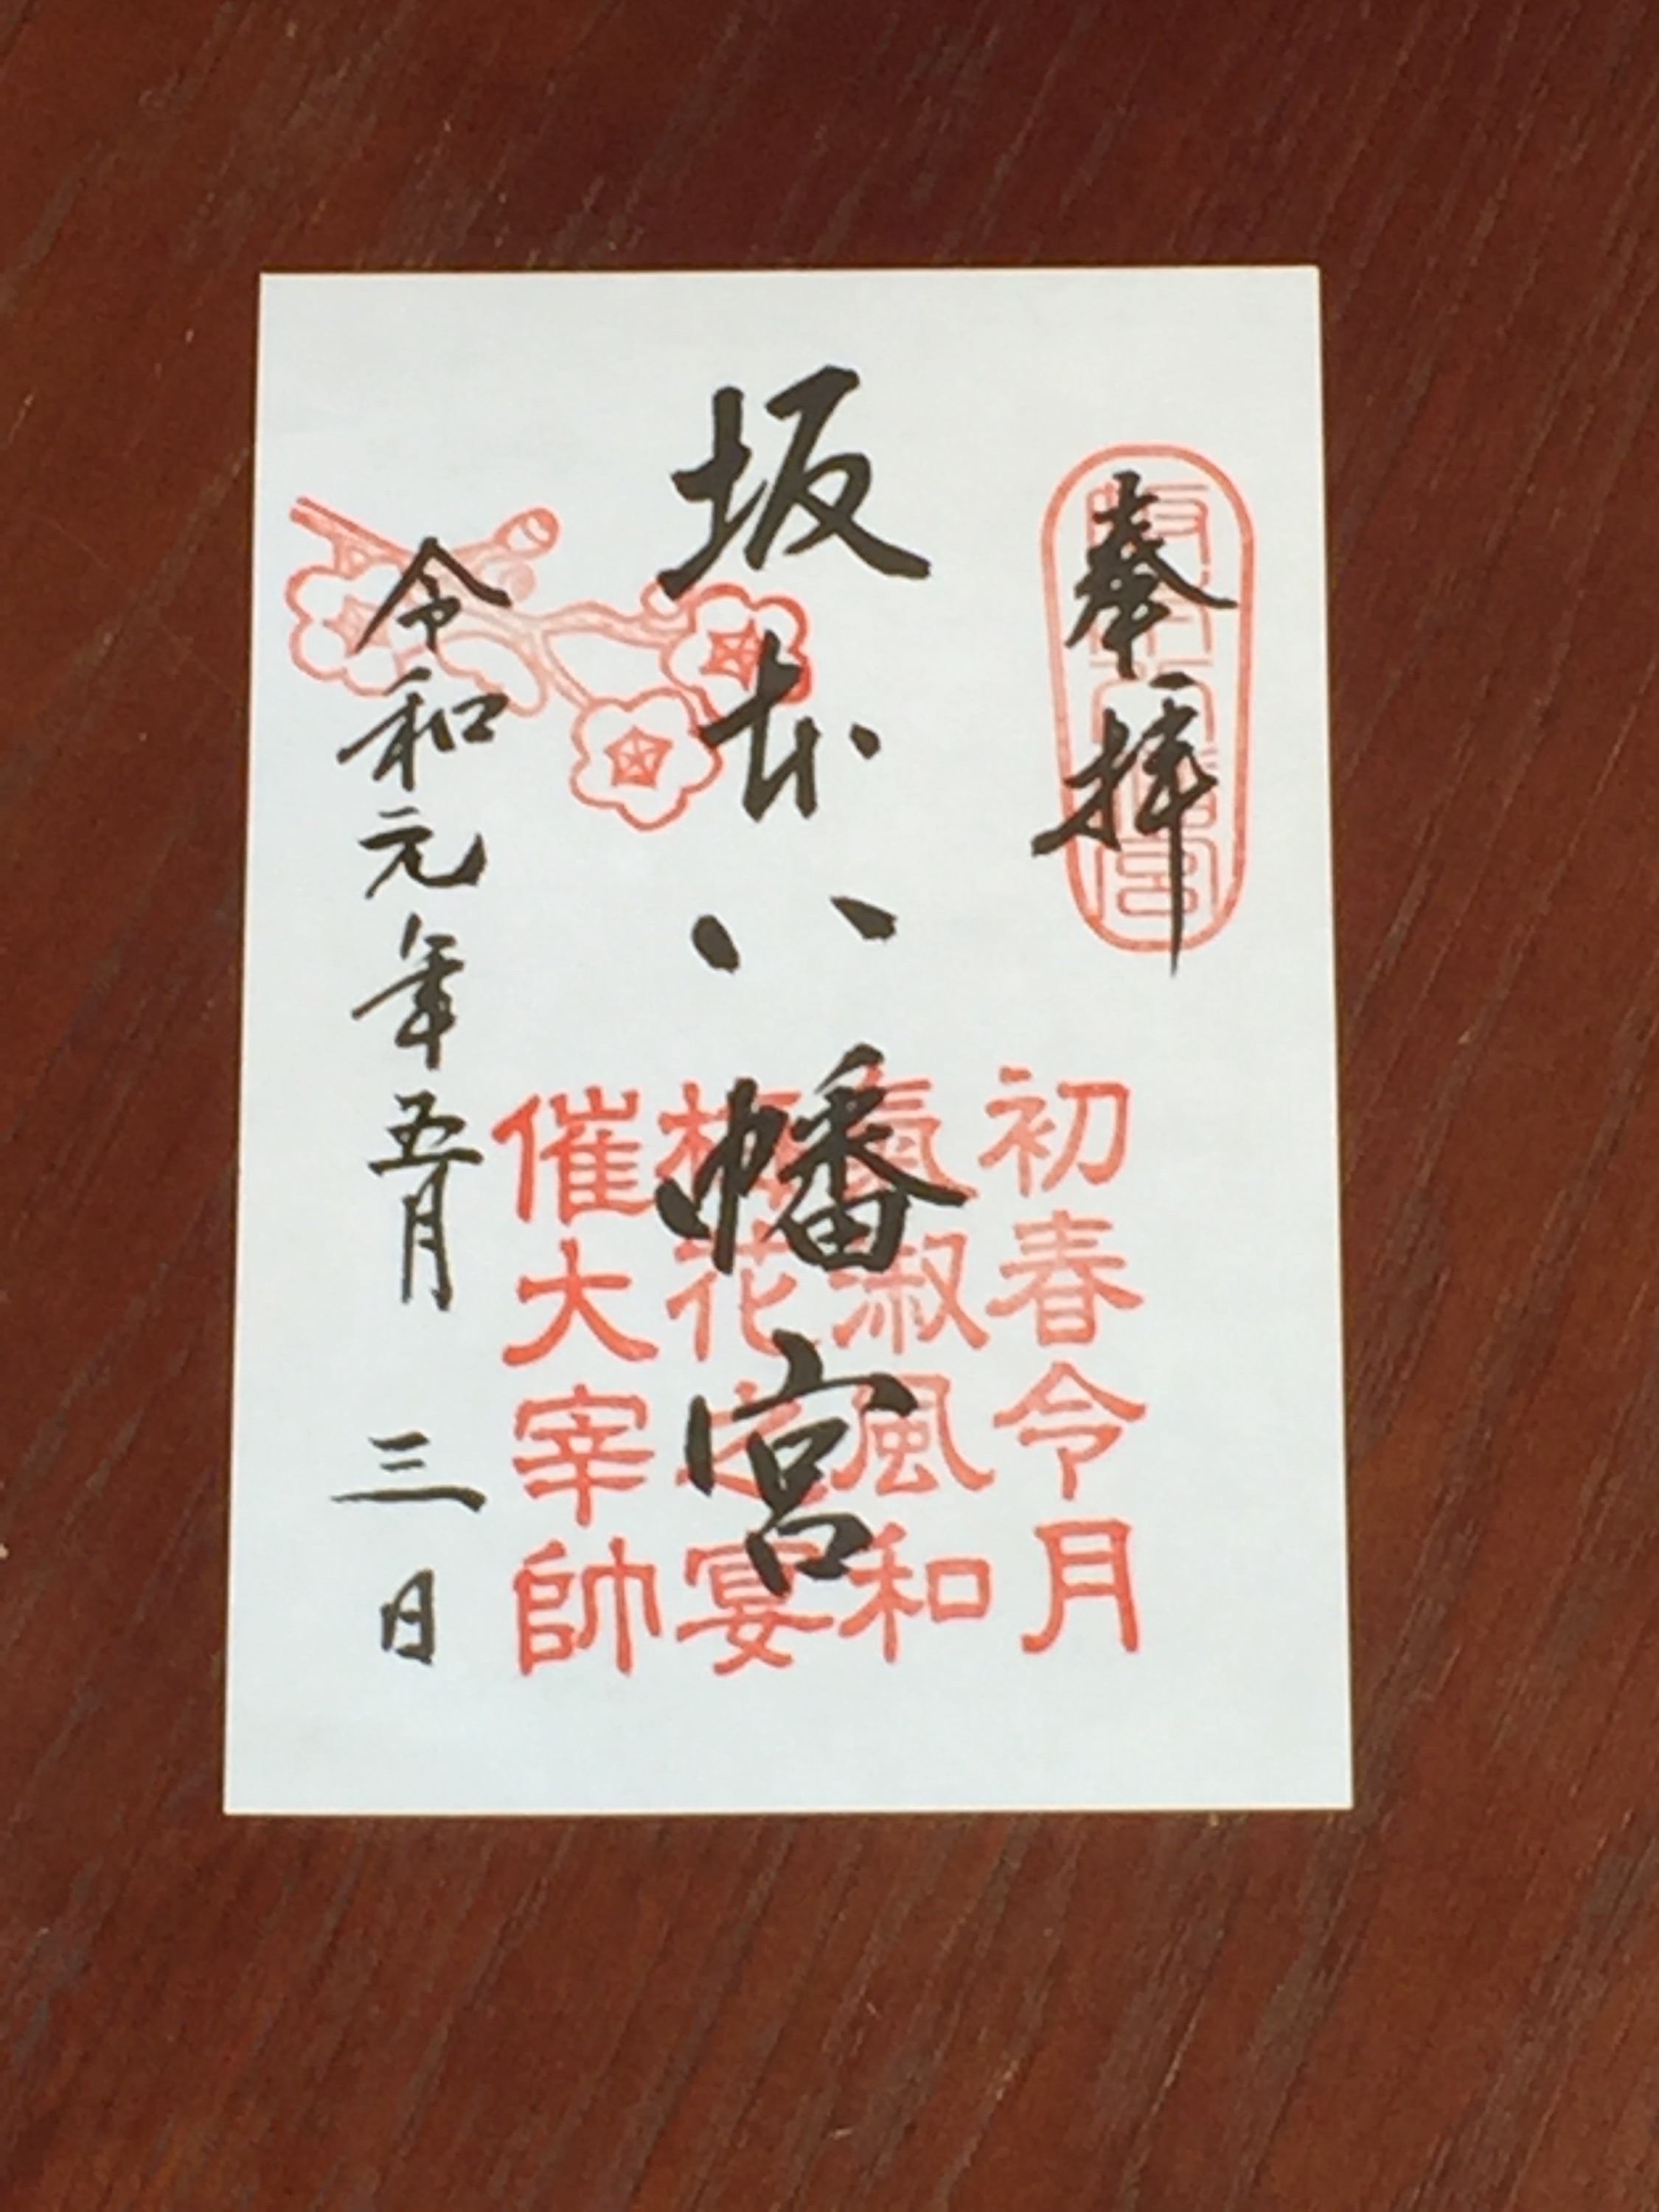 奉拝
坂本八幡宮
初春令月
氣淑風和
梅花之宴
催大宰帥
令和元年五月三日